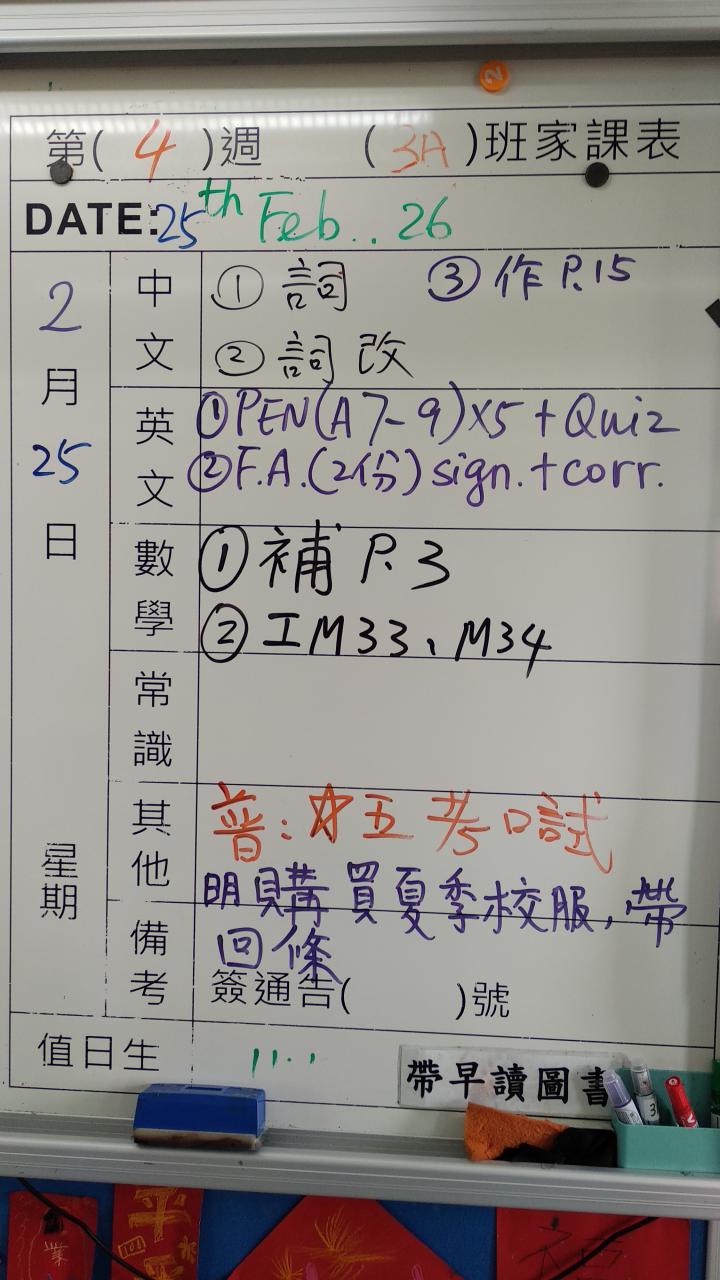 第( 4 )週 ( 3A )班家課表
DATE: 25th Feb.. 26
2月25日 星期
中文 ① 詞 ③ 作 P.15
② 詞改
英文 ①PEN(A7-9)x5 + Quiz
②F.A.(2份) sign. + corr.
數學 ① 補 P.3
② 工M33、M34
常識
其他 普: 五 考口試
備考 明 購買夏季校服, 帶
回條
簽通告( )號
值日生
帶早讀圖書
2
3